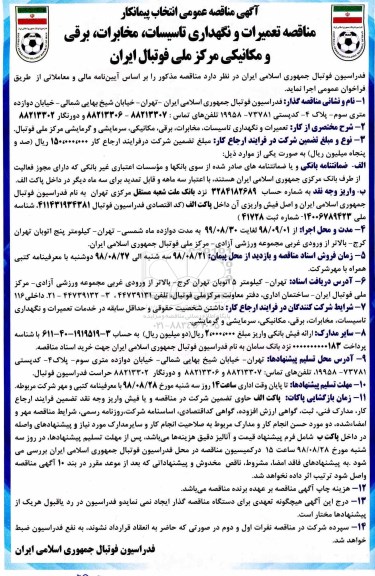 آگهی مناقصه عمومی انتخاب پیمانکار
مناقصه تعمیرات و نگهداری تاسیسات، مخابرات، برقی
و مکانیکی مرکز ملی فوتبال ایران
فدراسیون فوتبال جمهوری اسلامی ایران در نظر دارد مناقصه مذکور را بر اساس آیین‌نامه مالی و معاملاتی از طریق
فراخوان عمومی اجرا نماید.
۱- نام و نشانی مناقصه گذار: فدراسیون فوتبال جمهوری اسلامی ایران -تهران- خیابان شیخ بهایی شمالی- خیابان دوازده
متری سوم- پلاک ۴- کدپستی ۷۳۷۸۱- ۱۹۹۵۸ تلفن‌های تماس: ۸۸۲۱۳۳۰۷ - ۸۸۲۱۳۳۰۶ و دورنگار ۸۸۲۱۳۳۰۲
۲- شرح مختصری از کار: تعمیرات و نگهداری تاسیسات، مخابرات، برقی، مکانیکی، سرمایشی و گرمایشی مرکز ملی فوتبال.
۳- نوع و مبلغ تضمین شرکت در فرایند ارجاع کار: مبلغ تضمین شرکت درفرایند ارجاع کار ۱۵۰۰۰۰۰۰۰۰ ریال (صد و
پنجاه میلیون ریال) به صورت یکی از موارد ذیل:
الف- ضمانتنامه بانکی و یا ضمانتنامه های صادر شده از سوی بانکها و مؤسسات اعتباری غیر بانکی که دارای مجوز فعالیت
از طرف بانک مرکزی جمهوری اسلامی ایران هستند، با اعتبار سه ماهه و قابل تمدید برای سه ماه دیگر در داخل پاکت الف.
ب- واریز وجه نقد به شماره حساب ۳۲۸۴۱۸۲۶۸۹ نزد بانک ملت شعبه مستقل مرکزی تهران به نام فدراسیون فوتبال
جمهوری اسلامی ایران و قراردادن فیش واریزی آن داخل پاکت الف (کد اقتصادی فدراسیون فوتبال ۴۱۱۴۳۱۹۳۴۳۸۱، شناسه
ملی ۱۴۰۰۶۷۸۹۴۲۳- شماره ثبت ۴۱۷۲۸)
۴- مدت و محل اجرا: از ۹۸/۰۹/۰۱ لغایت ۹۸/۰۸/۳۰ به مدت دوازده ماه شمسی- تهران- کیلومتر پنج اتوبان تهران
کرج- بالاتر از ورودی غربی مجموعه ورزشی آزادی - مرکز ملی فوتبال ایران.
۵- زمان فروش اسناد مناقصه و بازدید از محل پیمان: ۹۸/۰۸/۲۱ سه شنبه الی ۹۸/۰۸/۲۷ دوشنبه با معرفینامه کتبی
همراه با مهرشرکت.
۶- آدرس دریافت اسناد: تهران- کیلومتر ۵ اتوبان تهران کرج- بالاتر از ورودی غربی مجموعه ورزشی آزادی- مرکز
ملی فوتبال ایران- ساختمان اداری، دفتر معاونت مرکزملی فوتبال، تلفن ۴۴۷۳۹۱۳۱- ۴۴۷۳۹۱۳۲ - ۲۱. داخلی ۱۱۶
۷- شرایط شرکت کنندگان در فرایند ارجاع کار: داشتن شخصیت حقوقی و حداقل سابقه در خدمات تعمیرات و نگهداری
تاسیسات، مخابرات، برقی، مکانیکی، سرمایشی و گرمایشی.
۸- سایر مدارک: ارائه فیش بانکی واریز مبلغ ریال (دو میلیون ریال) به حساب با شناسه
پرداخت نزد بانک سامان به نام فدراسیون فوتبال جمهوری اسلامی ایران جهت خرید اسناد مناقصه.
۹- آدرس محل تسلیم پیشنهادها: تهران- خیابان شیخ بهایی شمالی- خیابان دوازده متری سوم- پلاک۴- کدپستی
۷۳۷۸۱- ۱۹۹۵۸، تلفن‌های تماس: ۸۸۲۱۳۳۰۷ و ۸۸۲۱۳۳۰۶ و دورنگار ۸۸۲۱۳۳۰۲ حراست فدراسیون فوتبال.
۱۰- مهلت تسلیم پیشنهادها: تا پایان وقت اداری ساعت۱۴ روز سه شنبه مورخ ۹۸/۰۸/۲۸ با معرفینامه کتبی و مهر شرکت مربوطه.
۱۱- زمان بازگشایی پاکات: پاکت الف حاوی تضمین شرکت در مناقصه و یا فیش واریز وجه نقد تضمین فرایند ارجاع
کار، مدارک فنی، ثبت، گواهی ارزش افزوده، گواهی کداقتصادی، اساسنامه شرکت،روزنامه رسمی، شرایط مناقصه مهر و
امضاءشده، دو مورد حسن انجام کار و مدارک مربوط به صلاحیت انجام کار و سایرمدارک مورد نیاز و پیشنهادهای واصله
در داخل پاکت ب شامل فرم پیشنهاد قیمت و آنالیز دقیق هزینه‌ها می‌باشد، پس از مهلت تسلیم پیشنهادها، در روز سه
شنبه مورخ ۹۸/۰۸/۲۸ ساعت ۱۵ درکمیسیون مناقصه در محل فدراسیون فوتبال جمهوری اسلامی ایران بررسی می
شود .به پیشنهادهای فاقد امضا، مشروط، ناقص مخدوش و پیشنهاداتی که بعد از موعد مقرر در بند ۱۰ آگهی مناقصه
واصل شود ترتیب اثر داده نخواهد شد.
۱۲- هزینه چاپ آگهی مناقصه بر عهده برنده مناقصه می‌باشد.
۱۳- درج این آگهی هیچگونه تعهدی برای دستگاه مناقصه گذار ایجاد نمی نمایدو فدراسیون در رد یاقبول هریک از
پیشنهادها مختار است.
۱۴- سپرده شرکت در مناقصه نفرات اول و دوم در صورتی که حاضر به انعقاد قرارداد نشوند، به نفع فدراسیون ضبط
خواهد شد.
فدراسیون فوتبال جمهوری اسلامی ایران